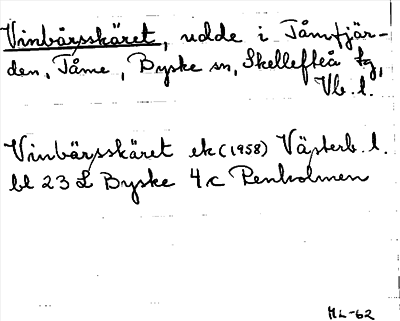 Vinbärsskäret, udde i Tåmefjär-
den, Tåme, Byske sn, Skellefteå tg,
Vb. l.
Vinbärsskäret ek (1958) Västerb. l.
bl 23 L Byske 4c Renholmen
ML-62